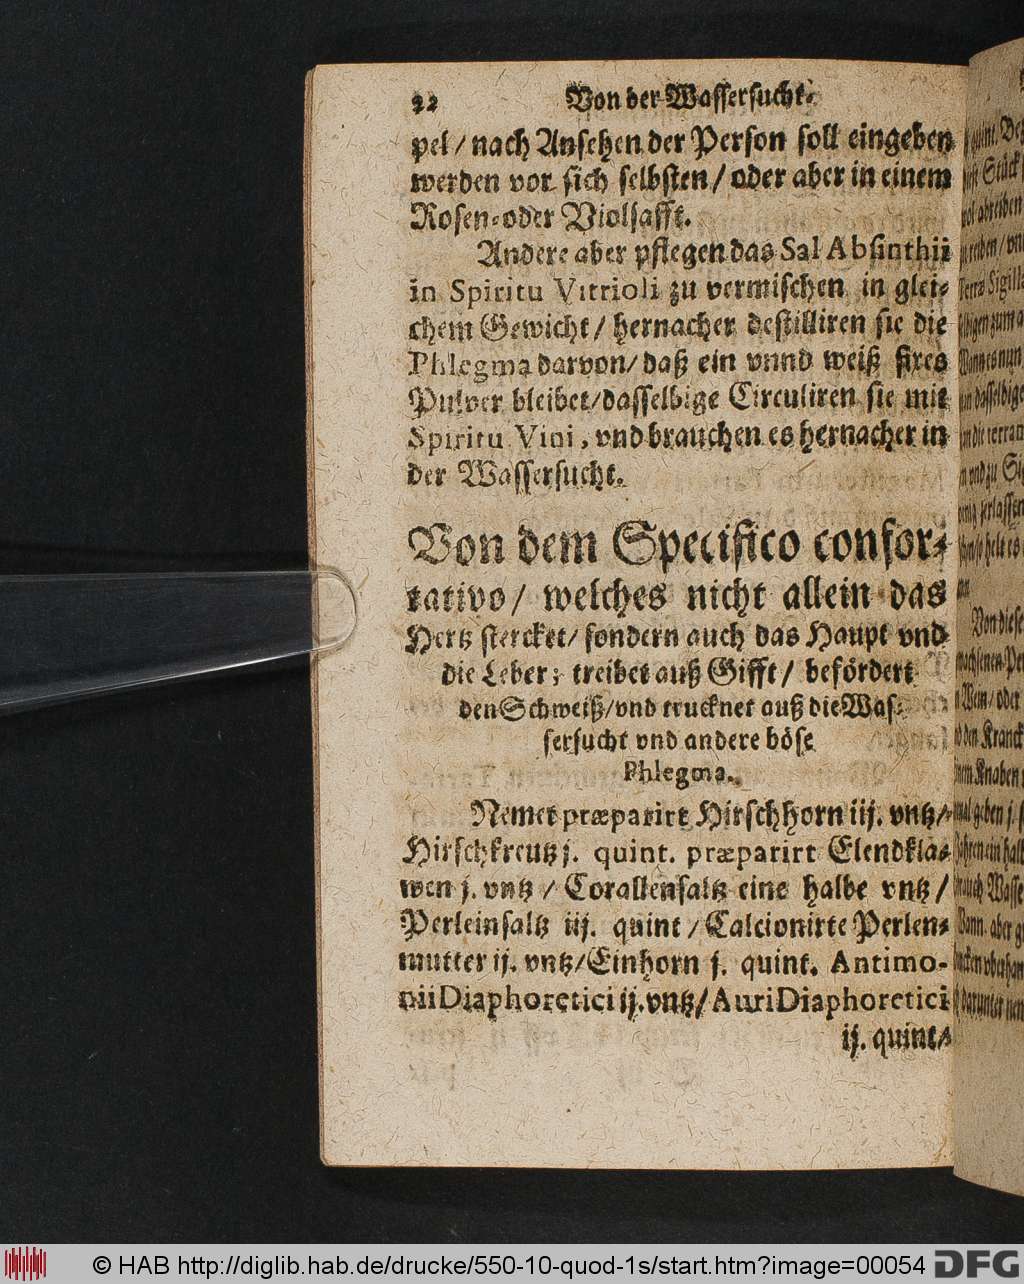 22 Von der Wassersucht.
pel / nach Ansehen der Person soll eingeben
werden vor sich selbsten / oder aber in einem
Rosen- oder Violsafft.
Andere aber pflegen das Sal Absinthii
in Spiritu Vitrioli zu vermischen in glei-
chem Gewicht / hernacher destilliren sie die
Phlegma darvon / daß ein vnnd weiß fixes
Pulver bleibet / dasselbige Circuliren sie mit
Spiritu Vini, vnd brauchen es hernacher in
der Wassersucht.
Von dem Specifico confor-
tativo / welches nicht allein das
Hertz stercket / sondern auch das Haupt vnd
die Leber; treibet auß Gifft / befördert
den Schweiß / vnd trucknet auß die Was-
sersucht vnd andere böse
Phlegma.
Nemet præparirt Hirschhorn iij. vntz /
Hirschkreutz j. quint. præparirt Elendkla-
wen j. vntz / Corallensaltz eine halbe vntz /
Perleinsaltz iij. quint / Calcionirte Perlen-
mutter ij. vntz / Einhorn j. quint. Antimo-
nii Diaphoretici ij. vntz / Auri Diaphoretici
ij. quint /
© HAB http://diglib.hab.de/drucke/550-10-quod-1s/start.htm?image=00054 DFG